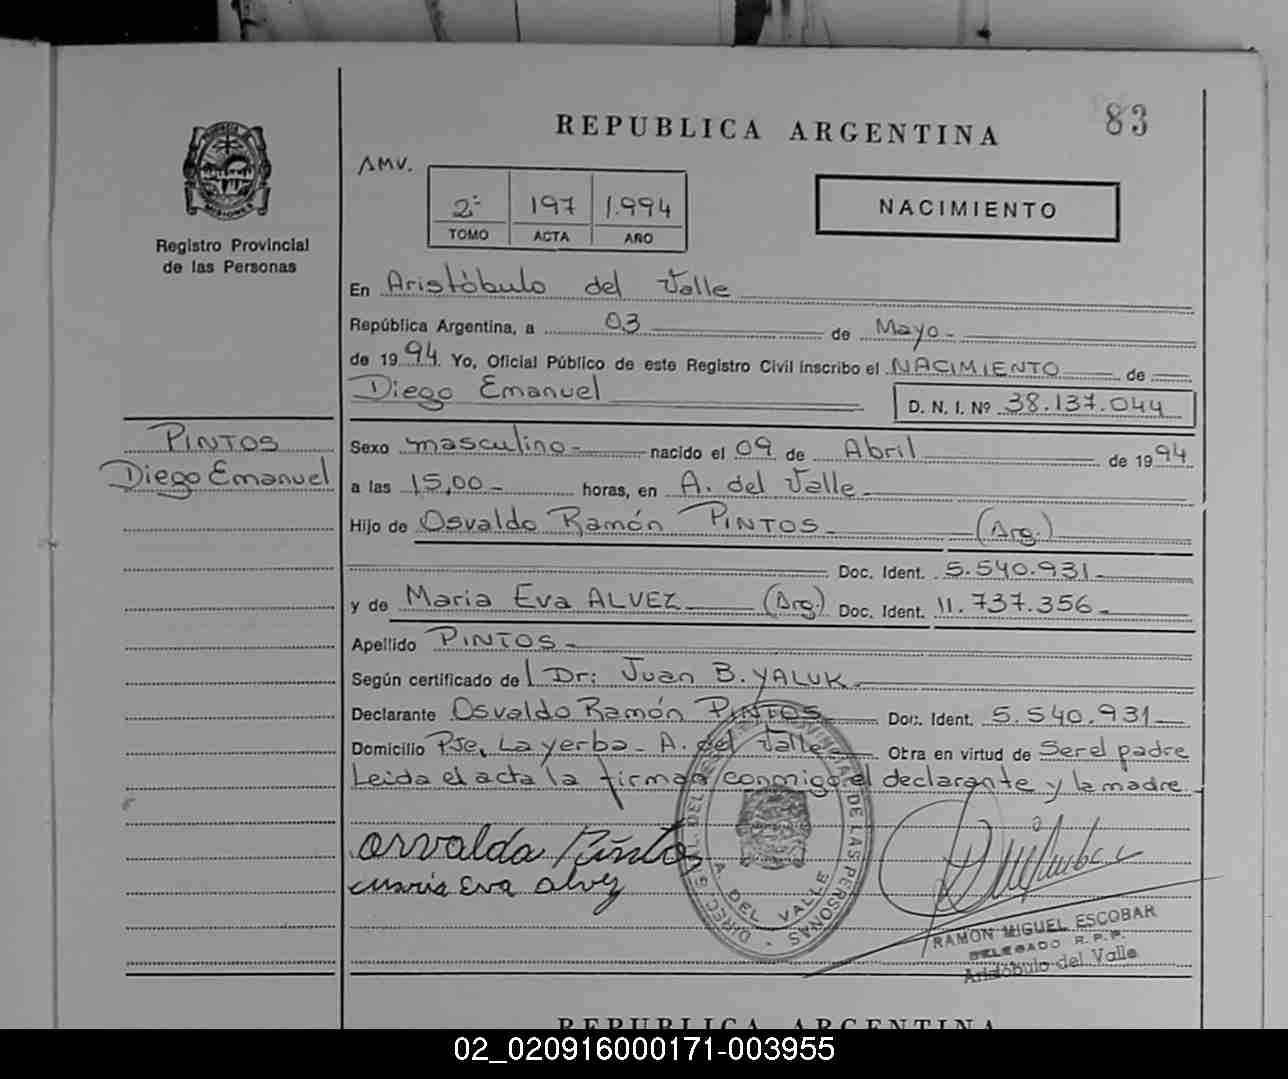 83
REPUBLICA ARGENTINA
AMV.
2º 197 1.994
TOMO ACTA AÑO
NACIMIENTO
PROVINCIA DE MISIONES
Registro Provincial
de las Personas
En Aristóbulo del Valle
República Argentina, a 03 de Mayo-
de 1994. Yo, Oficial Público de este Registro Civil inscribo el NACIMIENTO de
Diego Emanuel D. N. I. Nº 38.137.044
PINTOS
Diego Emanuel
Sexo masculino- nacido el 09 de Abril de 1994
a las 15,00- horas, en A. del Valle-
Hijo de Osvaldo Ramón PINTOS- (Arg.)
Doc. Ident. 5.540.931-
y de Maria Eva ALVEZ (Arg.) Doc. Ident. 11.737.356-
Apellido PINTOS-
Según certificado de l Dr: Juan B. YALUK-
Declarante Osvaldo Ramón PINTOS Doc. Ident. 5.540.931-
Domicilio Pje, La yerba- A. del Valle Otra en virtud de Ser el padre
Leida el acta la firman conmigo el declarante y la madre-
osvalda Pintos
maria Eva alvez
DE LAS PERSONAS
A. DEL VALLE
RAMON MIGUEL ESCOBAR
DELEGADO R.P.P.
Aristóbulo del Valle
REPUBLICA ARGENTINA
02_020916000171-003955